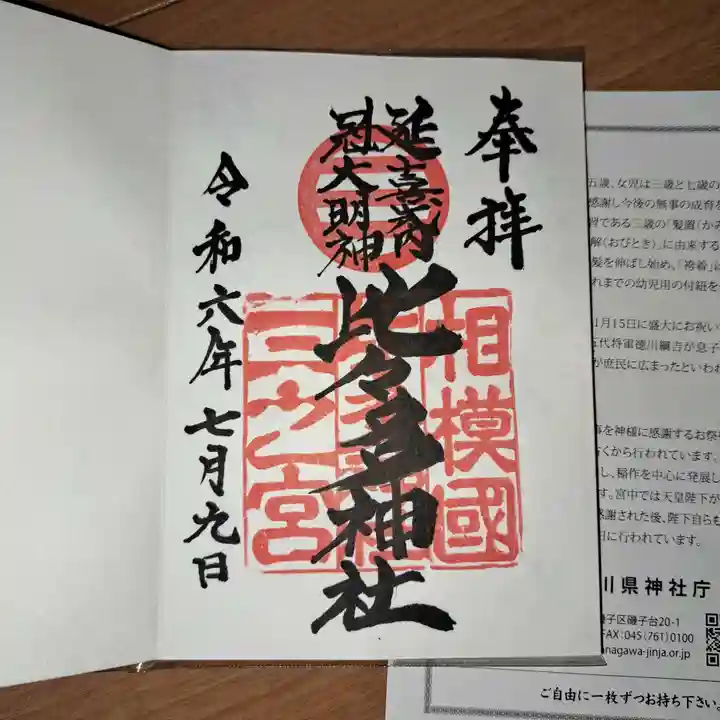 奉拝
延喜式内
冠大明神
比々多神社
相模國
三之宮
令和六年七月九日
五歳、女児は三歳と七歳の
感謝し今後の無事の成育を
習である三歳の「髪置(かみ
解(おびとき)」に由来する
髪を伸ばし始め。「袴着」に
れまでの幼児用の付紐を
1月15日に盛大にお祝い
五代将軍徳川綱吉が息子
が庶民に広まったといわれ
を神様に感謝するお祭
くから行われています。
し、稲作を中心に発展し
す。宮中では天皇陛下が
感謝された後、陛下自らも
日に行われています。
川県神社庁
磯子区磯子台20-1
FAX:045(761)0100
nagawa-jinja.or.jp
ご自由に一枚ずつお持ち下さい。